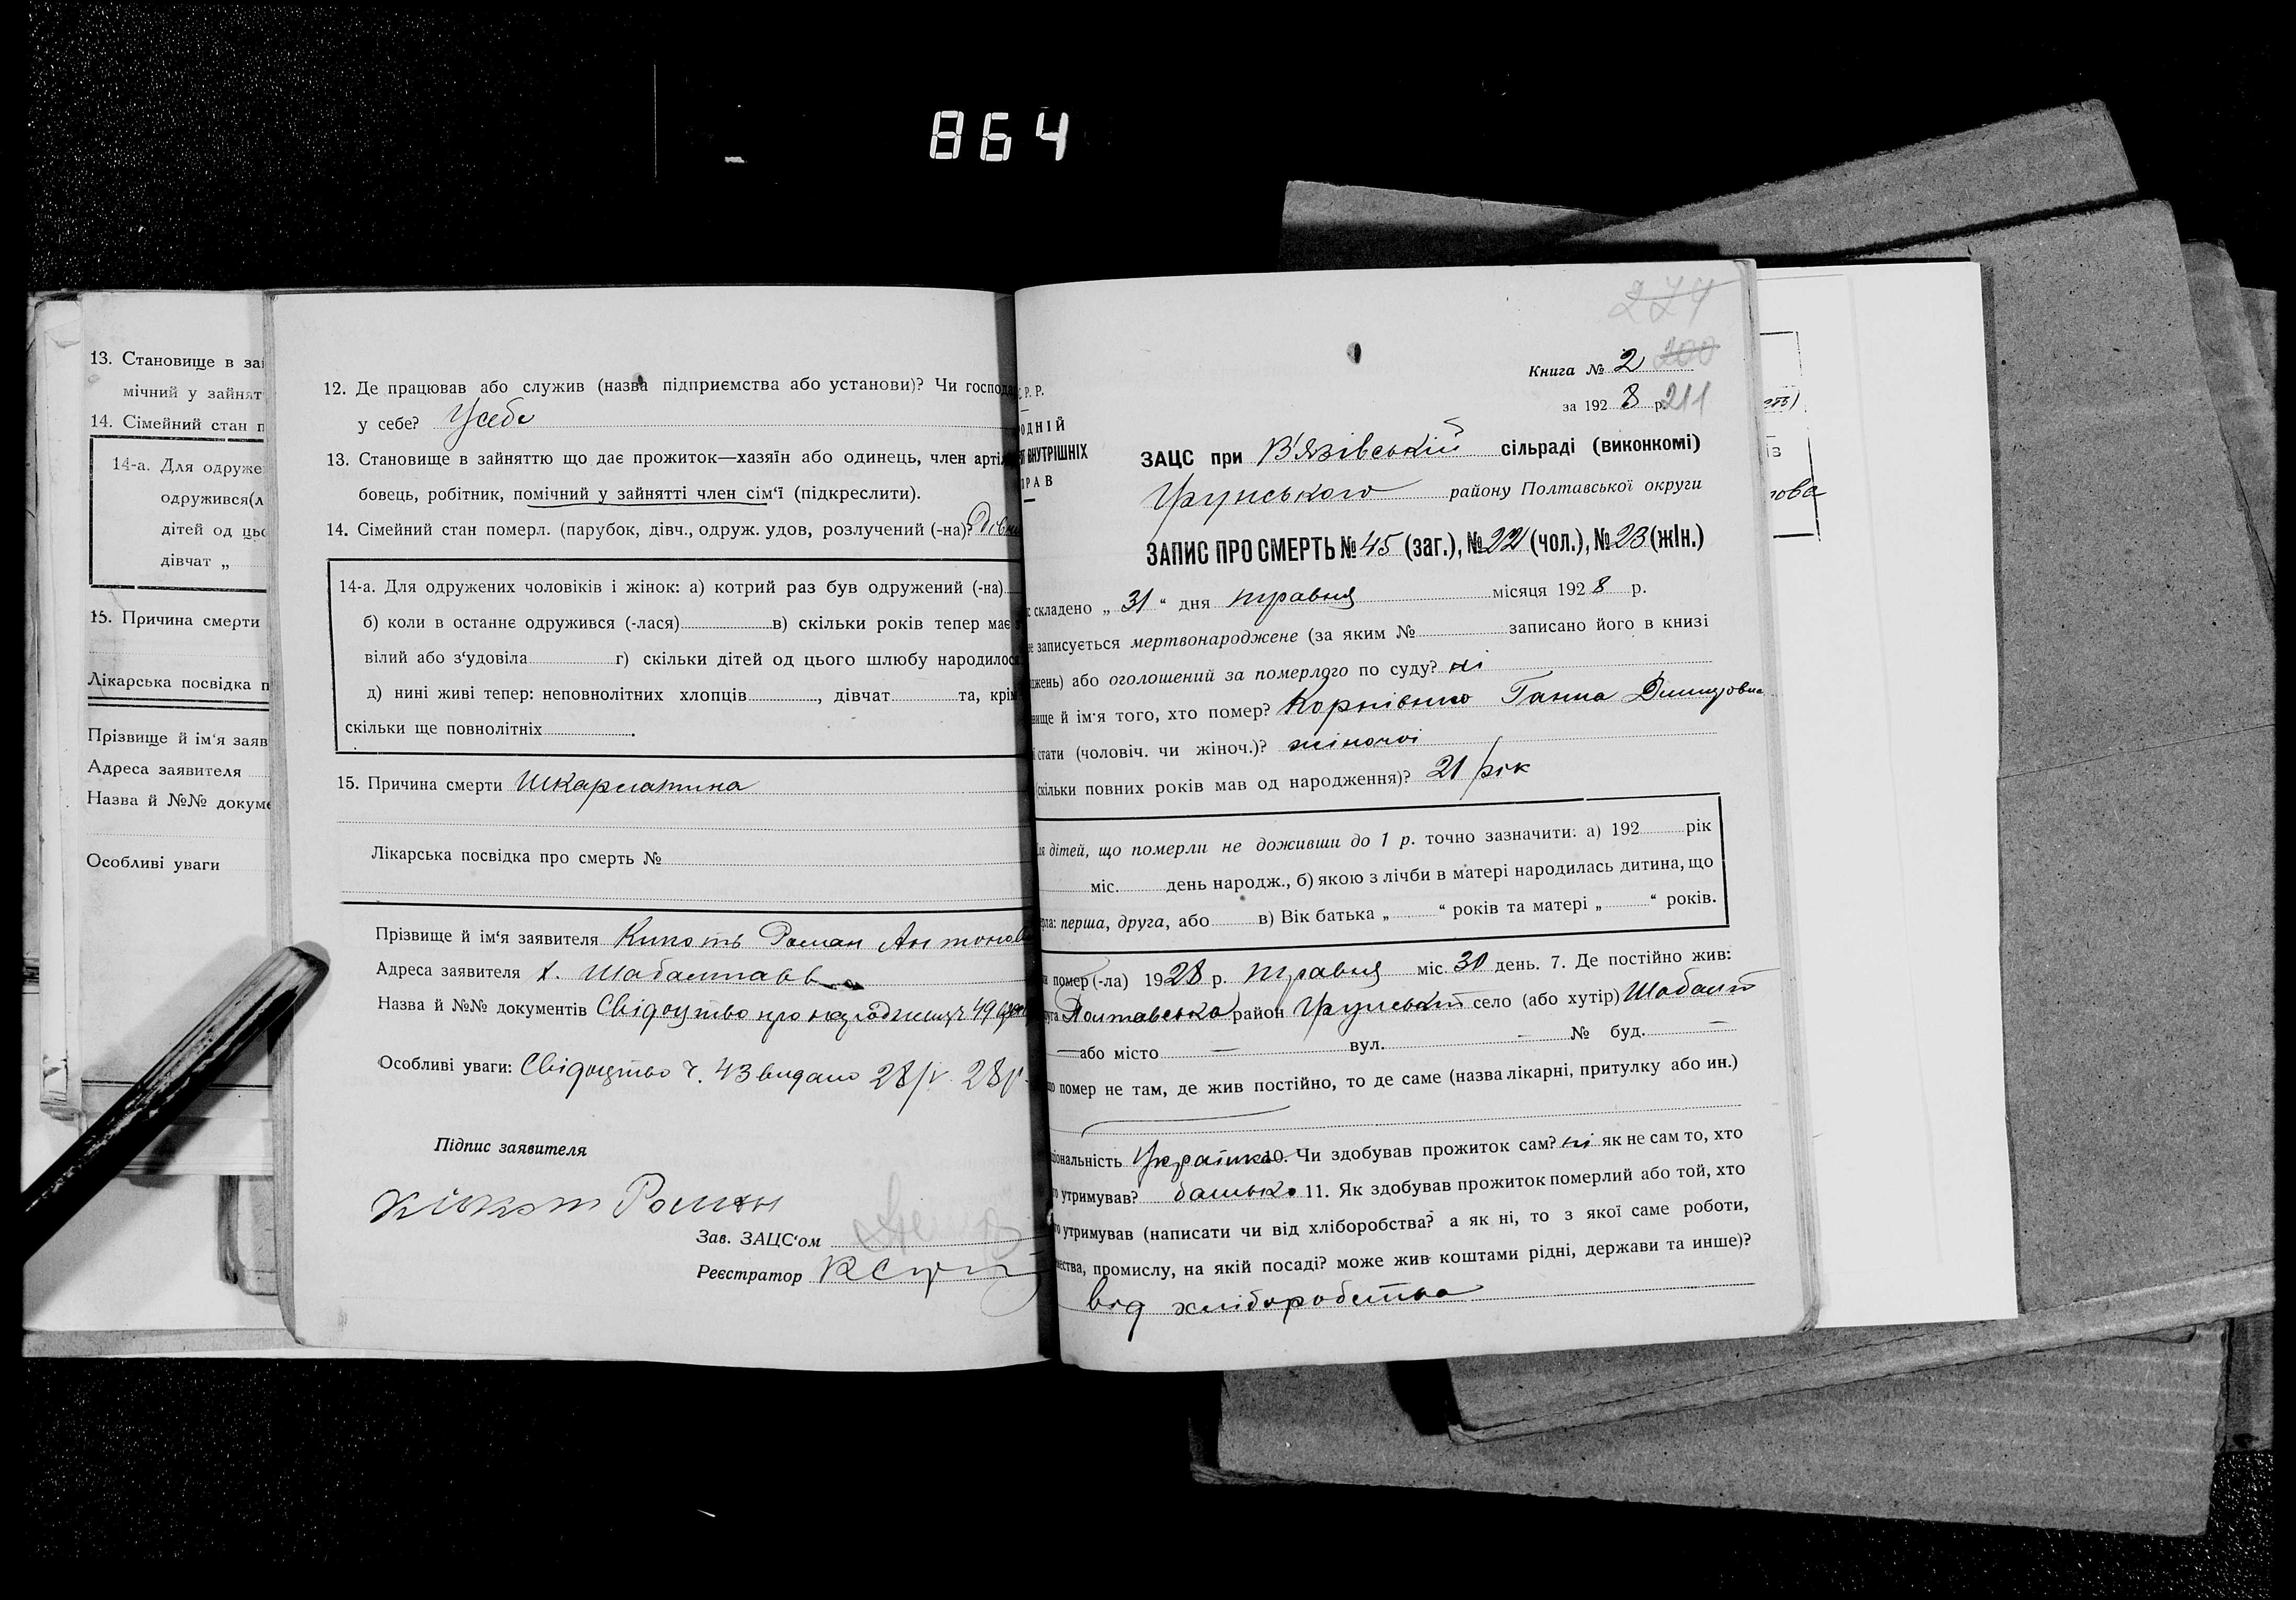 864
13. Становище в за
мічний у зайнят
14. Сімейний стан п
14-а. Для одруже
одружився(л
дітей од цьо
дівчат „
15. Причина смерти
Лікарська посвідка п
Прізвище й ім'я заяв
Адреса заявителя
Назва й №№ докуме
Особливі уваги
12. Де працював або служив (назва підприємства або установи)? Чи господа
у себе? У себе
13. Становище в зайняттю що дає прожиток—хазяїн або одинець, член арті
бовець, робітник, помічний у зайнятті член сім'ї (підкреслити).
14. Сімейний стан померл. (парубок, дівч., одруж. удов, розлучений (-на)?
14-а. Для одружених чоловіків і жінок: а) котрий раз був одружений (-на)
б) коли в останнє одружився (-лася) в) скільки років тепер має
вілий або з'удовіла г) скільки дітей од цього шлюбу народилося
д) нині живі тепер: неповнолітних хлопців , дівчат та, крім
скільки ще повнолітніх .
15. Причина смерти Шкарлатина
Лікарська посвідка про смерть №
Прізвище й ім'я заявителя Кипоть Роман Антонов
Адреса заявителя х. Шабалтаєв
Назва й №№ документів Свідоцтво про народження 49
Особливі уваги: Свідоцтво ч. 43 видано 28/V 28р
Підпис заявителя
Роман
Зав. ЗАЦС'ом
Реєстратор
С. Р. Р.
ОДНІЙ
ВНУТРІШНІХ
РАВ
274
Книга № 2 200
за 1928 р. 211
ЗАЦС при В'язівській сільраді (виконкомі)
Грунського району Полтавської округи
ЗАПИС ПРО СМЕРТЬ № 45 (заг.), № 22 (чол.), № 23 (жін.)
складено „ 31 “ дня травня місяця 1928 р.
записується мертвонароджене (за яким № записано його в книзі
джень) або оголошений за померлого по суду? ні
вище й ім'я того, хто помер? Корнієнко Ганна Дмитровна
стати (чоловіч. чи жіноч.)? жіночої
скільки повних років мав од народження)? 21 рік
дітей, що померли не доживши до 1 р. точно зазначити: а) 192 рік
міс. день народж., б) якою з лічби в матері народилась дитина, що
рла: перша, друга, або в) Вік батька „ “ років та матері „ “ років.
помер (-ла) 1928 р. травня міс. 30 день. 7. Де постійно жив:
уга Полтавська район Грунський село (або хутір) Шабалт
— або місто — вул. — № буд. —
помер не там, де жив постійно, то де саме (назва лікарні, притулку або ин.)
ціональність Українка 10. Чи здобував прожиток сам? ні як не сам то, хто
утримував? батько 11. Як здобував прожиток померлий або той, хто
утримував (написати чи від хліборобства? а як ні, то з якої саме роботи,
ества, промислу, на якій посаді? може жив коштами рідні, держави та инше)?
від хліборобства